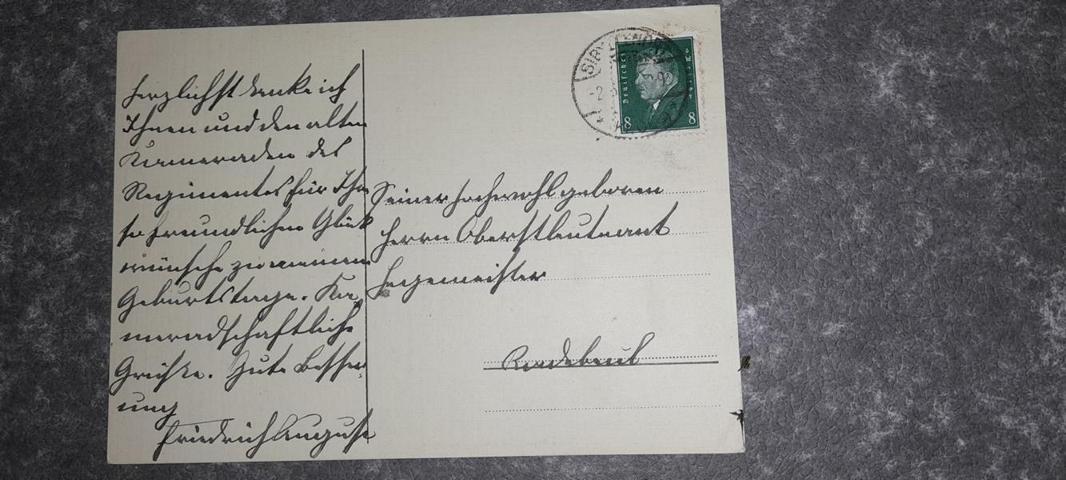 Herzlichst danke ich
Ihnen und den alten
Kameraden des
Regimentes für Ihre
so freundlichen Glück
wünsche zu meinem
Geburtstage. Ka
meradschaftliche
Grüße. Gute Besser
ung
Friedrich August
Deutsches Reich
8 8
Seiner Hochwohlgeboren
Herrn Oberstleutnant
Hegemeister
Radebeul